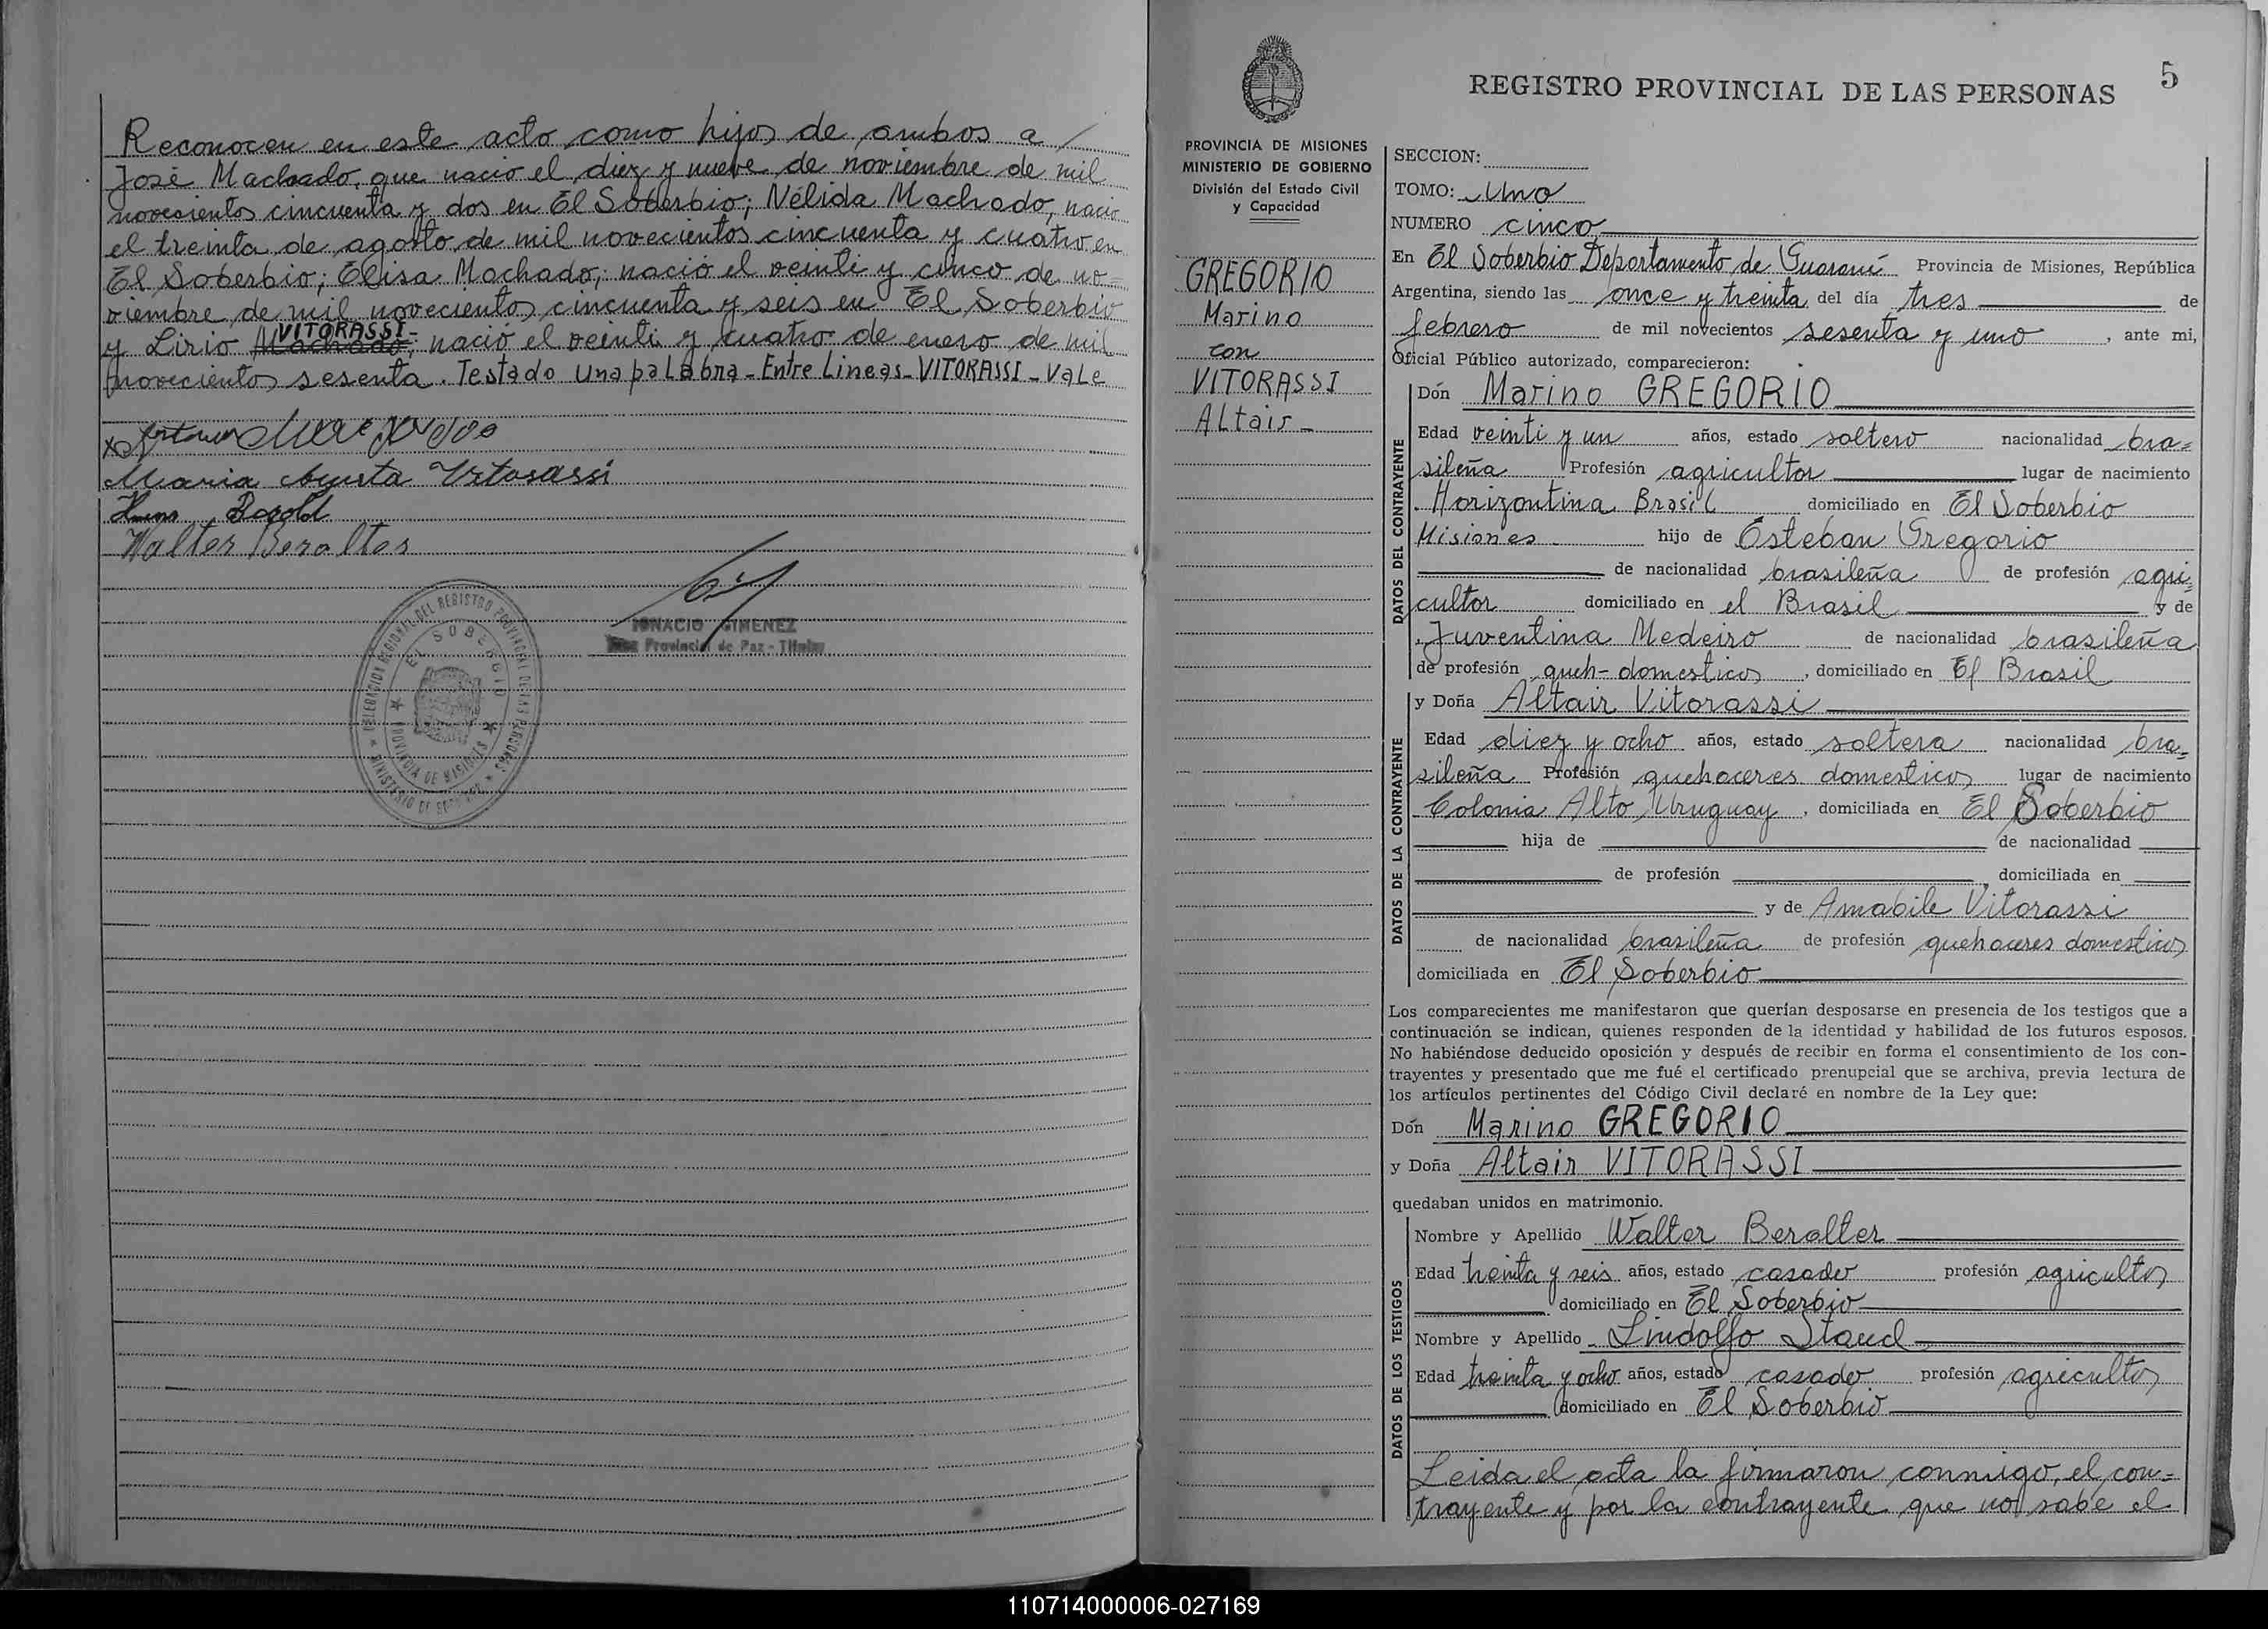 Reconocen en este acto como hijos de ambos a
José Machado, que nació el diez y nueve de noviembre de mil
novecientos cincuenta y dos en El Soberbio; Nélida Machado, nació
el treinta de agosto de mil novecientos cincuenta y cuatro en
El Soberbio; Elisa Machado; nació el veinti y cinco de no=
viembre de mil novecientos cincuenta y seis en El Soberbio
VITORASSI-
y Lirio Machado; nació el veinti y cuatro de enero de mil
novecientos sesenta. Testado una palabra - Entre Lineas - VITORASSI - Vale
Maria Vitorassi
Walter Beralter
IGNACIO GIMENEZ
Juez Provincial de Paz - Titular
DELEGACION REGIONAL DEL REGISTRO PROVINCIAL DE LAS PERSONAS
EL SOBERBIO
PROVINCIA DE MISIONES
MINISTERIO DE GOBIERNO
5
REGISTRO PROVINCIAL DE LAS PERSONAS
PROVINCIA DE MISIONES
MINISTERIO DE GOBIERNO
División del Estado Civil
y Capacidad
GREGORIO
Marino
con
VITORASSI
Altair -
SECCION:
TOMO: Uno
NUMERO cinco
En El Soberbio Departamento de Guaraní Provincia de Misiones, República
Argentina, siendo las once y treinta del día tres de
febrero de mil novecientos sesenta y uno, ante mi,
Oficial Público autorizado, comparecieron:
DATOS DEL CONTRAYENTE
Dón Marino GREGORIO
Edad veinti y un años, estado soltero nacionalidad bra=
sileña Profesión agricultor lugar de nacimiento
Horizontina Brasil domiciliado en El Soberbio
Misiones hijo de Esteban Gregorio
de nacionalidad brasileña de profesión agri=
cultor domiciliado en el Brasil y de
Juventina Medeiro de nacionalidad brasileña
de profesión queh-domesticos, domiciliado en El Brasil
DATOS DE LA CONTRAYENTE
y Doña Altair Vitorassi
Edad diez y ocho años, estado soltera nacionalidad bra=
sileña Profesión quehaceres domesticos lugar de nacimiento
Colonia Alto Uruguay, domiciliada en El Soberbio
hija de de nacionalidad
de profesión , domiciliada en
y de Amabile Vitorassi
de nacionalidad brasileña de profesión quehaceres domesticos
domiciliada en El Soberbio
Los comparecientes me manifestaron que querían desposarse en presencia de los testigos que a
continuación se indican, quienes responden de la identidad y habilidad de los futuros esposos.
No habiéndose deducido oposición y después de recibir en forma el consentimiento de los con-
trayentes y presentado que me fué el certificado prenupcial que se archiva, previa lectura de
los artículos pertinentes del Código Civil declaré en nombre de la Ley que:
Dón Marino GREGORIO
y Doña Altair VITORASSI
quedaban unidos en matrimonio.
DATOS DE LOS TESTIGOS
Nombre y Apellido Walter Beralter
Edad treinta y seis años, estado casado profesión agricultor
domiciliado en El Soberbio
Nombre y Apellido Lindolfo Staud
Edad treinta y ocho años, estado casado profesión agricultor
domiciliado en El Soberbio
Leida el acta la firmaron conmigo, el con=
trayente y por la contrayente que no sabe el
110714000006-027169